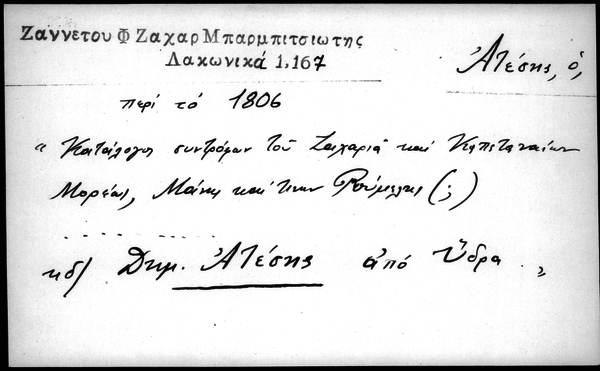 Ζαννετου Φ Ζαχαρ Μπαρμπιτσιωτης
Λακωνικά 1,167
Ἀτέσης, ὁ,
περί τό 1806
" Κατάλογος συντρόφων τοῦ Ζαχαριᾶ καί Καπεταναίων
Μορέως, Μάνης καί τινων Ρούμελης (;)
. . . . . . . . . .
κδ) Δημ. Ἀτέσης ἀπό Ὕδρα "